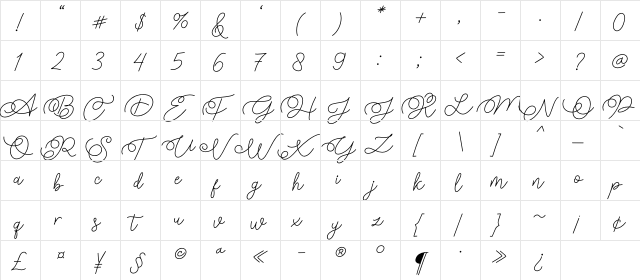 ! “ # $ % & ‘ ( ) * + , – . / 0
1 2 3 4 5 6 7 8 9 : ; < = > ? @
A B C D E F G H I J K L M N O P
Q R S T U V W X Y Z [ \ ] ^ — `
a b c d e f g h i j k l m n o p
q r s t u v w x y z { | } ~ ¡ ¢
£ ¤ ¥ § © ª « – ® ° ¶ · » ¿